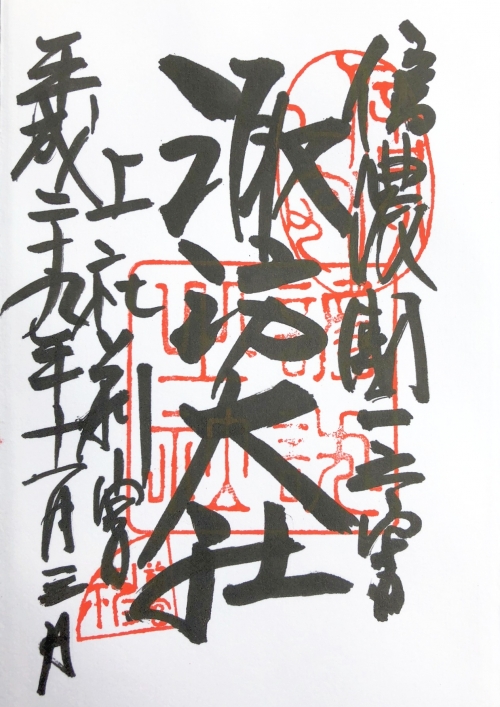 信濃國一之宮
諏訪大社
上社前宮
平成二十九年十一月三日